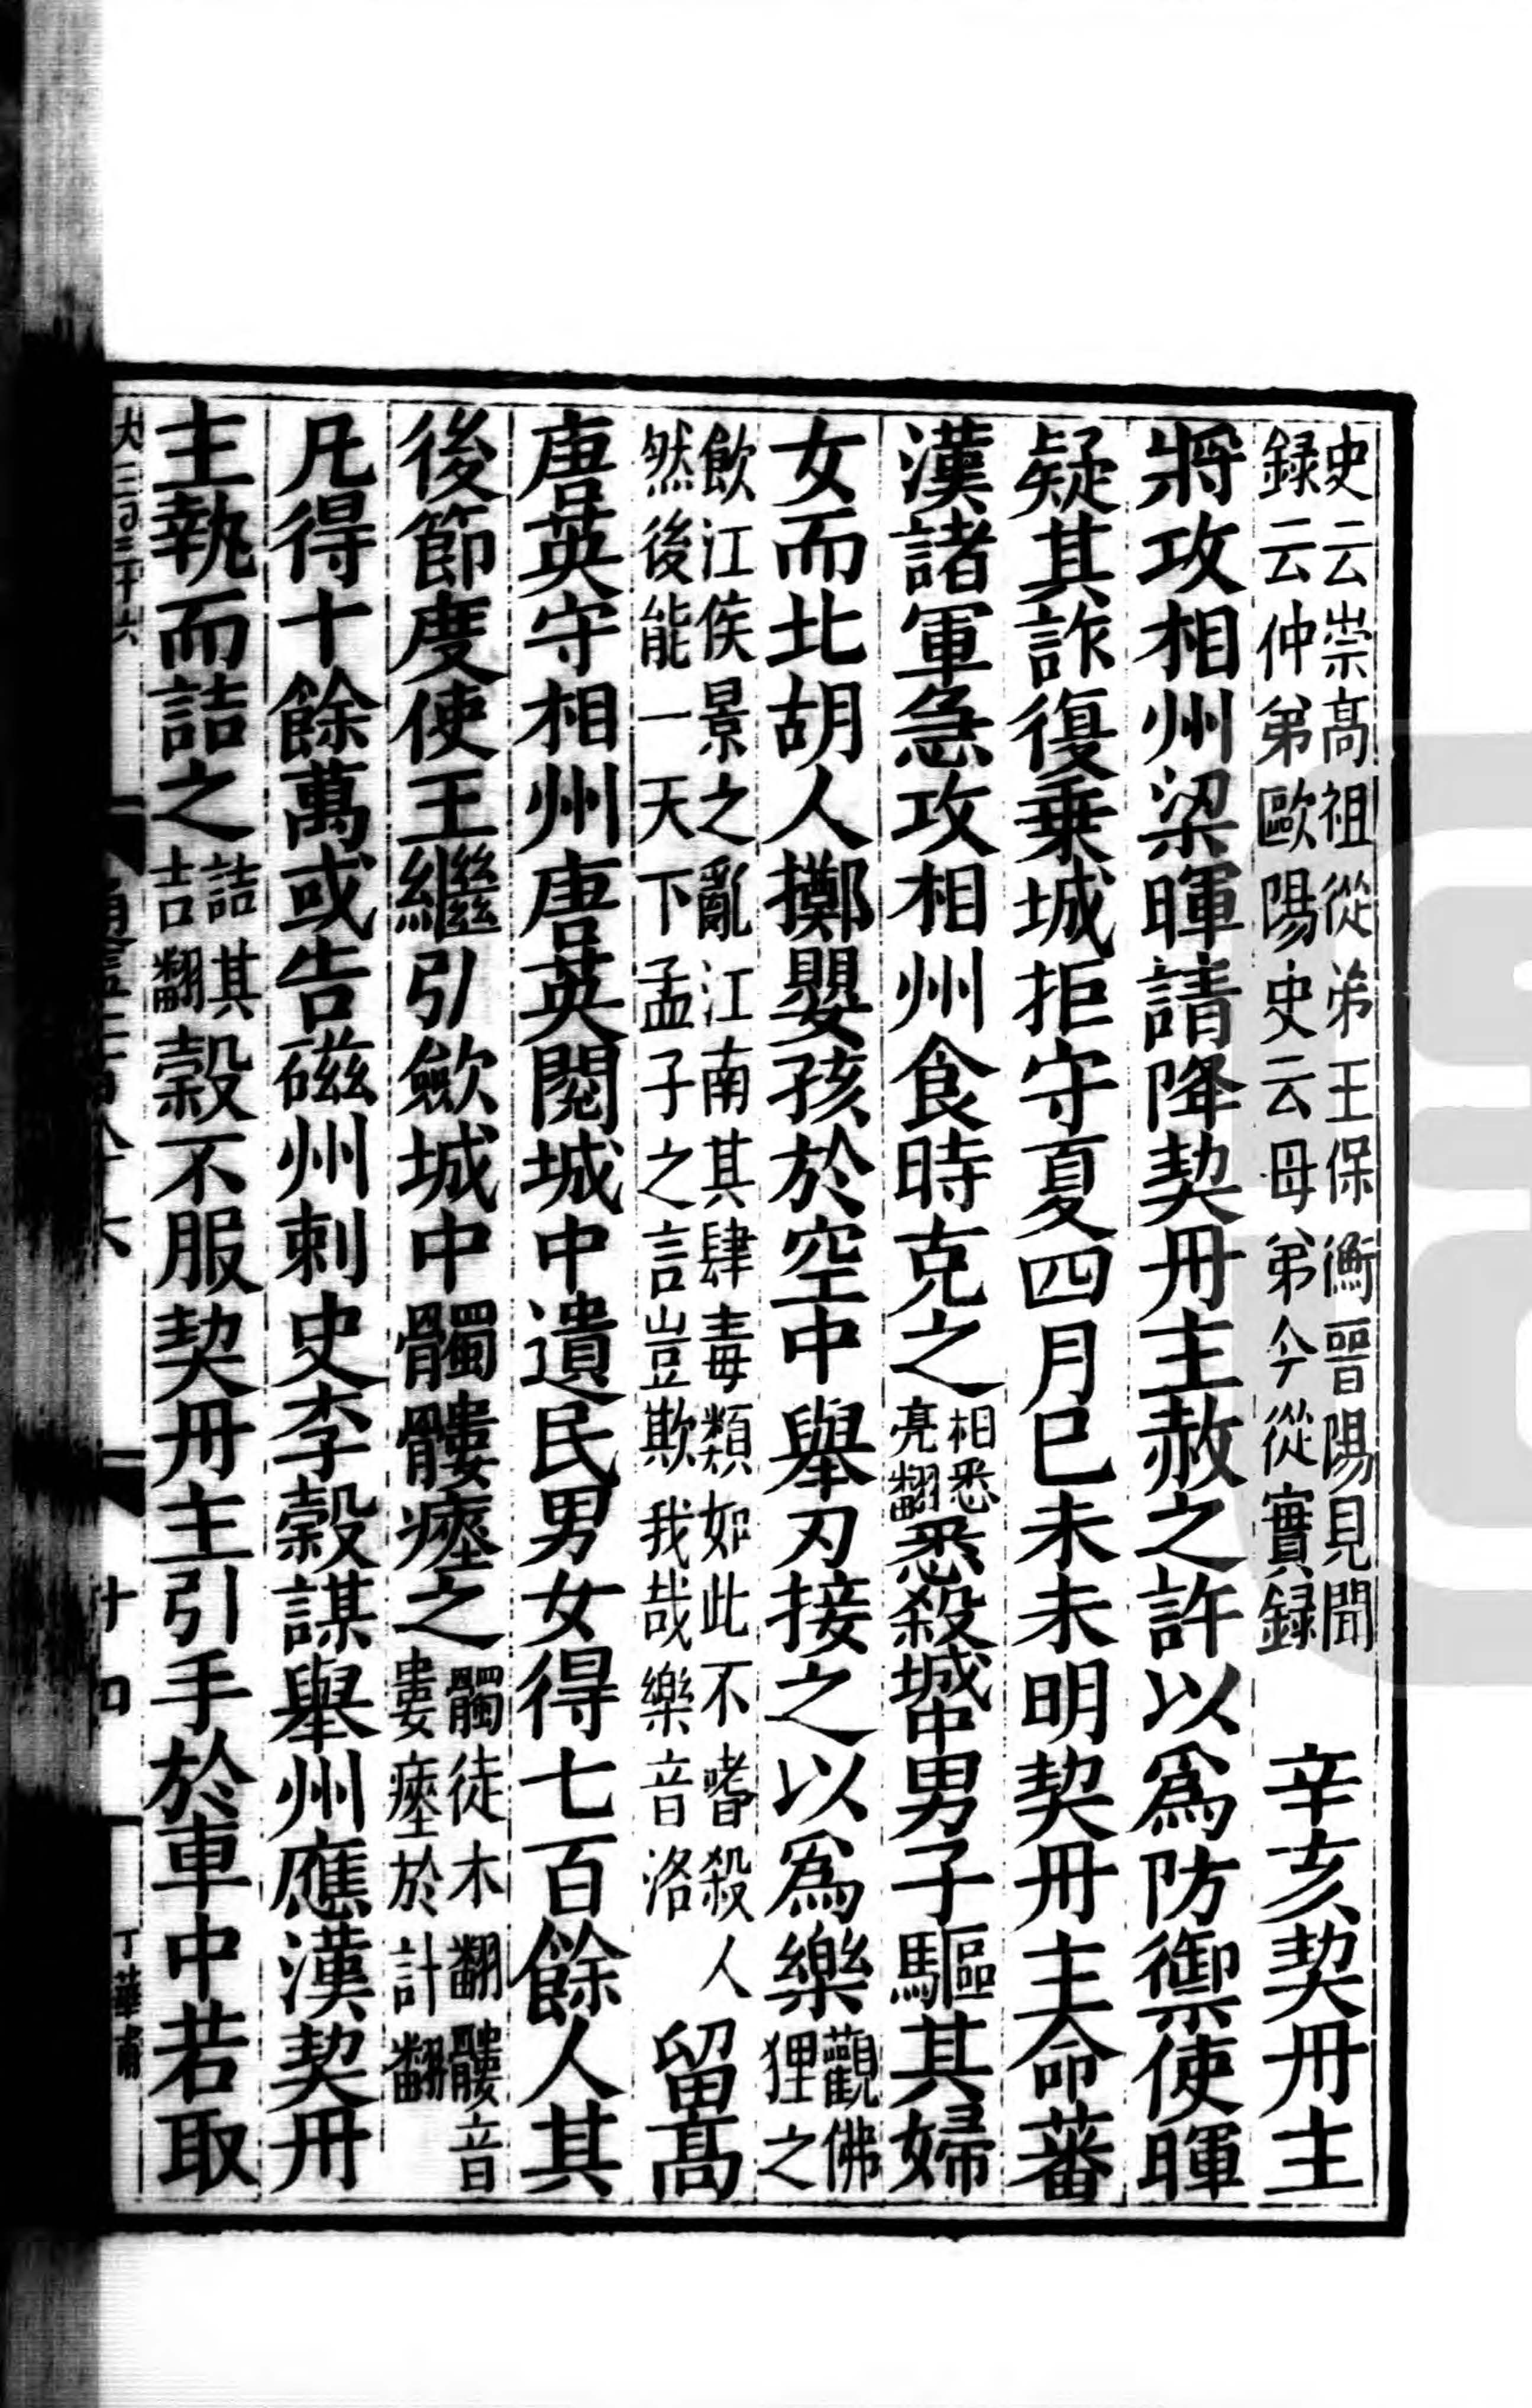 史云崇高祖從弟王保衡晉陽見聞
録云仲弟歐陽史云母弟今從實録
辛亥契丹主
將攻相州梁暉請降契丹主赦之許以爲防禦使暉
疑其詐復乗城拒守夏四月已未未明契丹主命蕃
漢諸軍急攻相州食時克之
相悉
亮翻
悉殺城中男子驅其婦
女而北胡人擲嬰孩於空中舉刃接之以爲樂
觀佛
狸之
飲江侯景之亂江南其肆毒類如此不嗜殺人
然後能一天下孟子之言豈欺我哉樂音洛
留高
唐英守相州唐英閱城中遺民男女得七百餘人其
後節度使王繼引斂城中髑髏瘞之
髑徒木翻髏音
婁瘞於計翻
凡得十餘萬或告磁州刺史李穀謀舉州應漢契丹
主執而詰之
詰其
吉翻
穀不服契丹主引手於車中若取
大三百三十六
十四
丁華甫